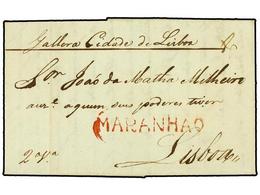 Galera Cidade de Lisboa
Snr. João da Matha Milheiro
aus.e a quem seus poderes tiver
MARANHAO
2a via
Lisboa